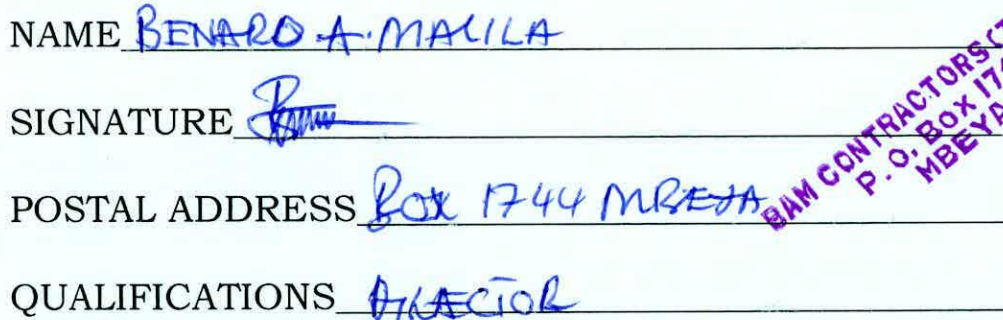 NAME BENARD A. MALILA
SIGNATURE
POSTAL ADDRESS Box 1744 MBEYA
QUALIFICATIONS DIRECTOR
BAM CONTRACTORS (T
P. O. BOX 174
MBEYA